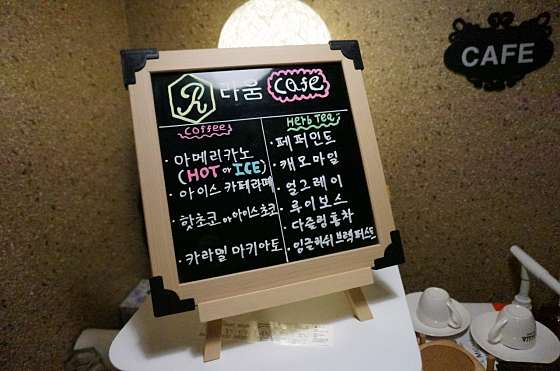 R 라움 Cafe
Coffee
· 아메리카노
(HOT or ICE)
· 아이스 카페라떼
· 핫초코 or 아이스초코
· 카라멜 마키아토
Herb Tea
· 페퍼민트
· 캐모마일
· 얼그레이
· 루이보스
· 다즐링홍차
· 잉글리쉬 브렉퍼스트
CAFE